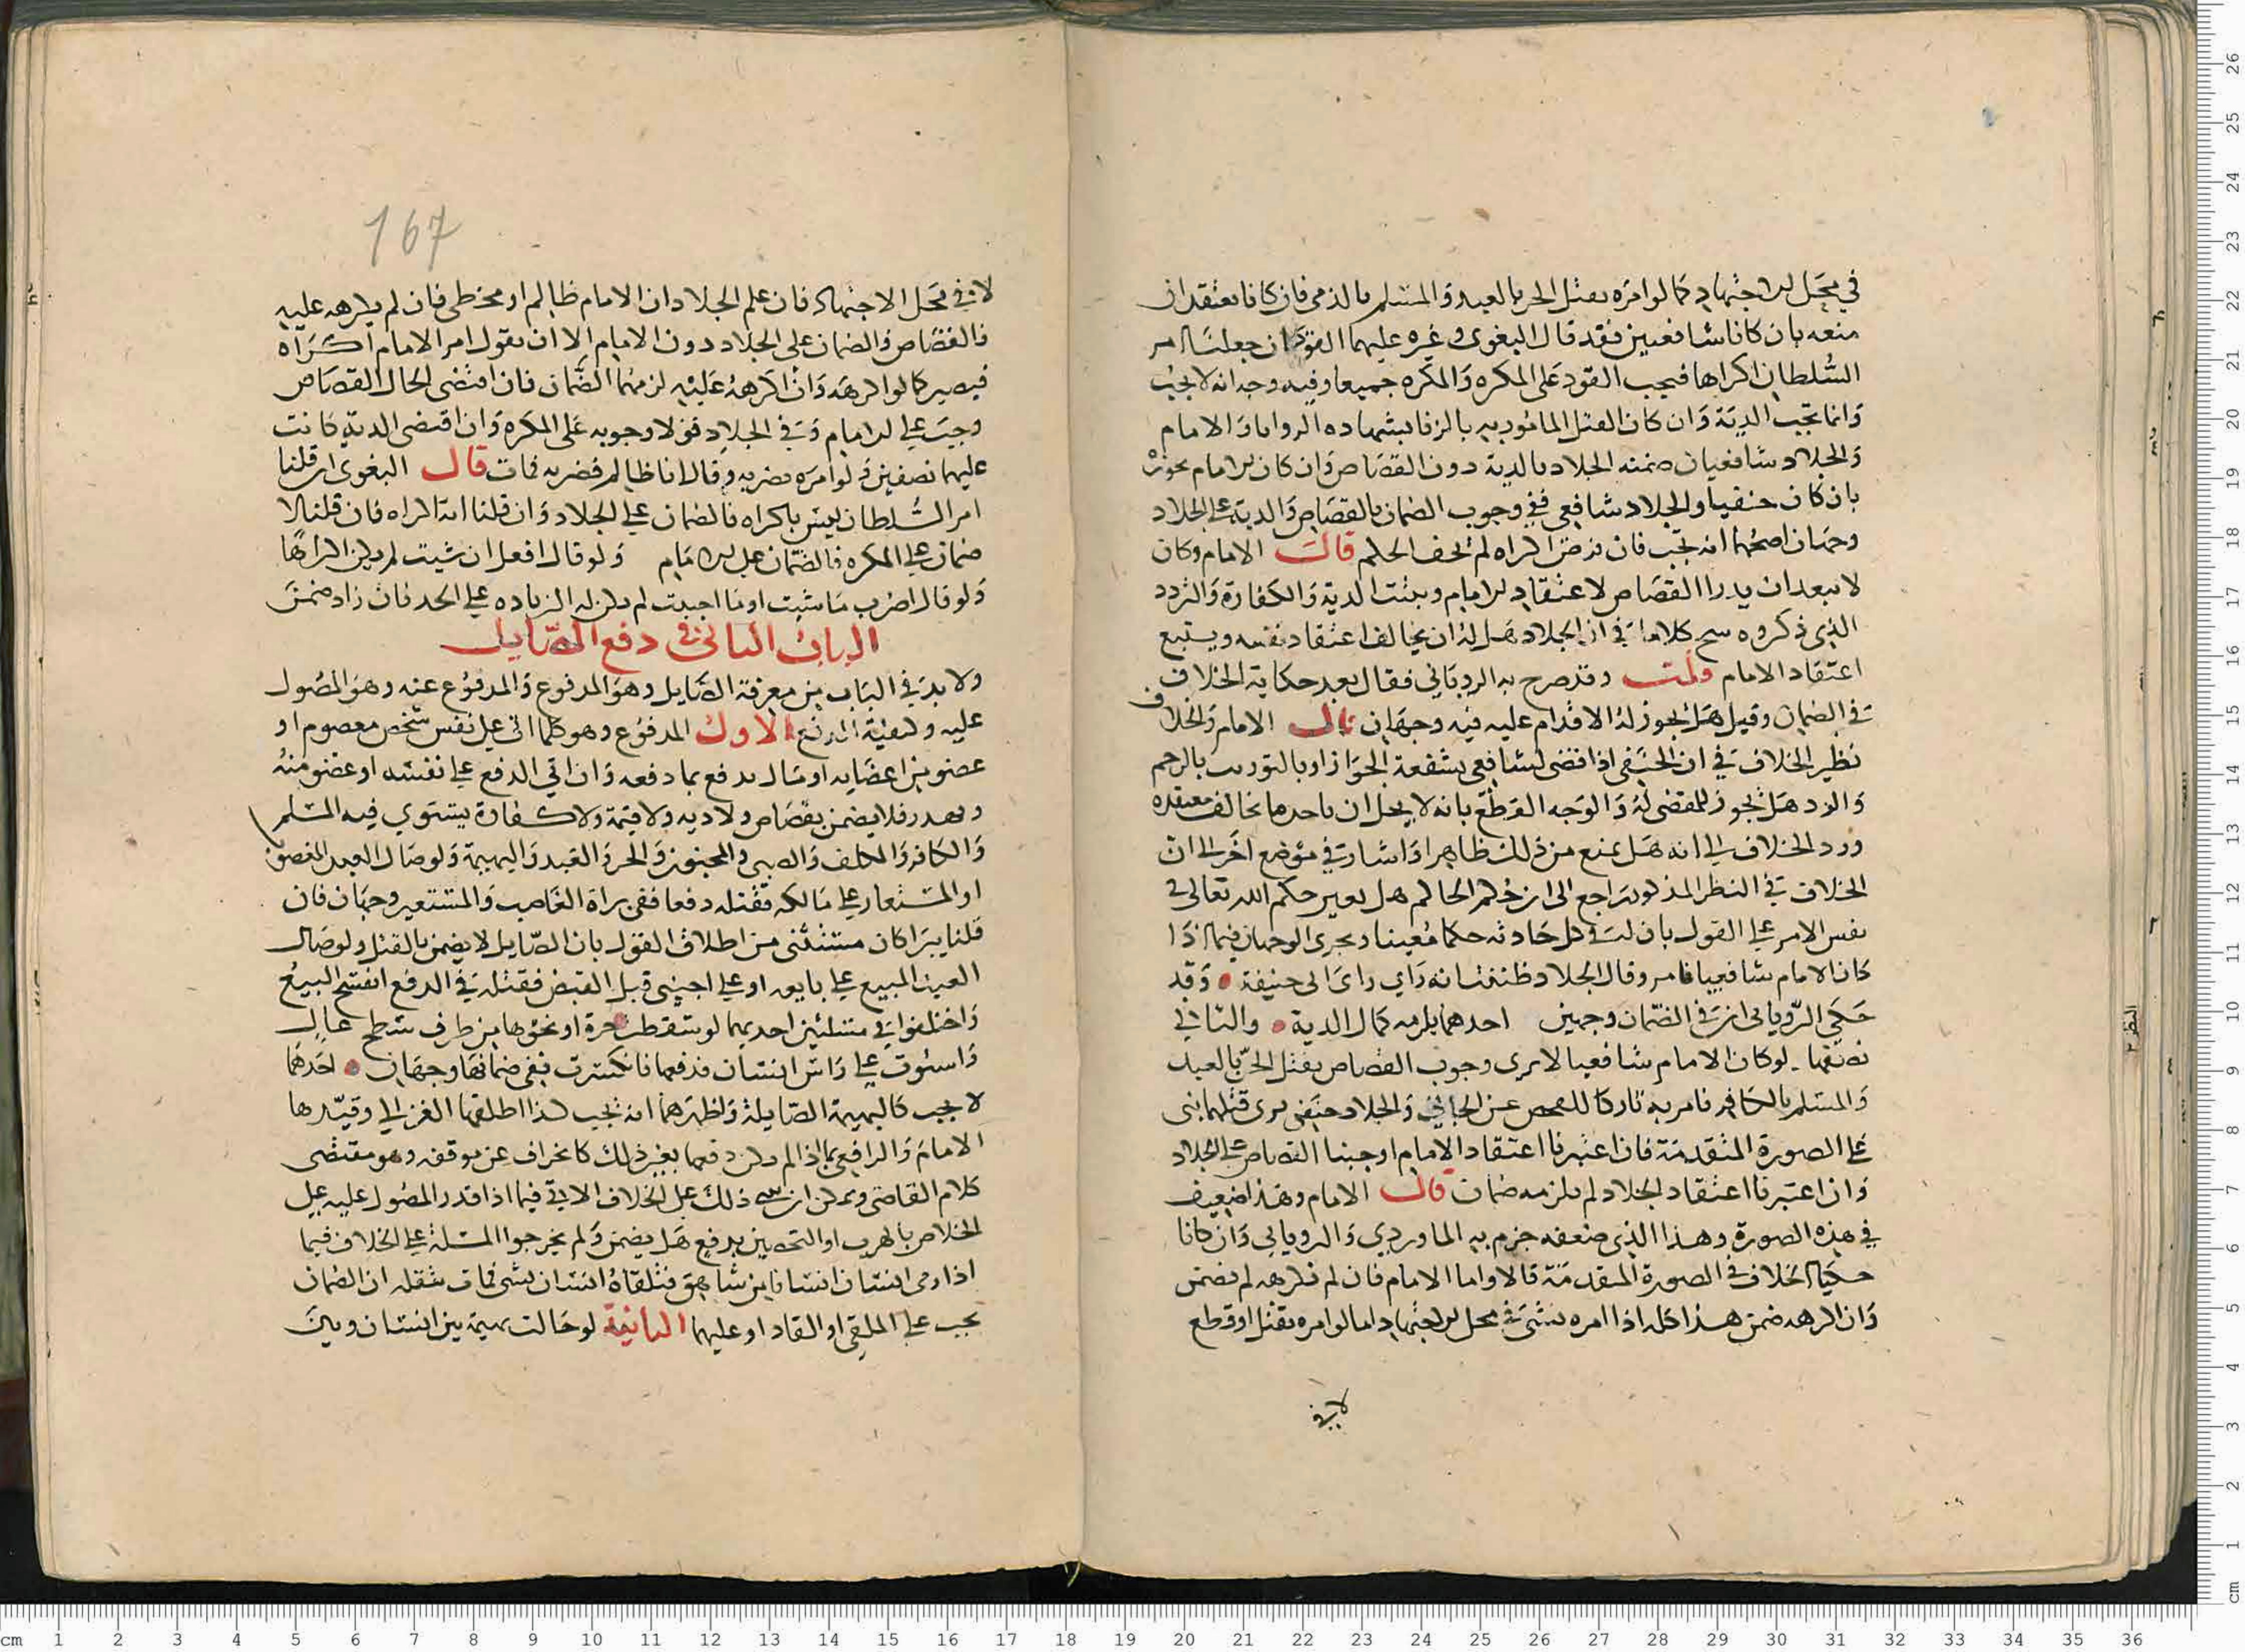 في محل الاجتهاد كما لو امره بقتل الحر بالعبد والمسلم بالذمي فان كانا يعتقدان
منعه بان كانا شافعيين فقد قال البغوي وغيره عليهما القود ان جعلنا امر
السلطان اكراها فيجب القود على المكره والمكره جميعا وفيه وجه انه لا يجب
وانما تجب الدية وان كان القتل المامور به بالزنا بشهاده الزوايا والامام
والجلاد شافعيان ضمنه الجلاد بالدية دون القصاص وان كان الامام يجوزه
بان كان حنفيا والجلاد شافعي ففي وجوب الضمان بالقصاص والدية على الجلاد
وجهان اصحهما انه تجب فان فرض اكراه لم يخف الحكم قال الامام وكان
لا يبعد ان يدرا القصاص لاعتقاد الامام ويثبت الدية والكفارة والتردد
الذي ذكروه كلاما في ان الجلاد هل له ان يخالف اعتقاد نفسه ويتبع
اعتقاد الامام قلت وقد صرح به الروياني فقال بعد حكاية الخلاف
في الضمان وقيل هل يجوز له الاقدام عليه فيه وجهان قال الامام والخلاف
نظير الخلاف في ان الحنفي اذا قضى لشافعي بشفعة الجوار او بالتوريث بالرحم
والرد هل يجوز للمقضى له والوجه القطع بانه لا يحل ان ياخذ ما يخالف معتقده
ورد الخلاف الى انه هل يمنع من ذلك ظاهرا واشار في موضع اخر الى ان
الخلاف في النظر المذكور راجع الى ان حكم الحاكم هل يغير حكم الله تعالى في
نفس الامر على القول بان لله في كل حادثه حكما معينا ويجري الوجهان فيما اذا
كان الامام شافعيا فامر وقال الجلاد ظننت انه راي راى ابي حنيفة وقد
حكى الروياني ان في الضمان وجهين احدهما يلزمه كمال الدية والثاني
نصفها لو كان الامام شافعيا لا يرى وجوب القصاص بقتل الحر بالعبد
والمسلم بالكافر فامر به تاركا للفحص عن الجاني والجلاد حنفي يرى قتلهما بنى
على الصورة المتقدمة فان اعتبرنا اعتقاد الامام اوجبنا القصاص على الجلاد
وان اعتبرنا اعتقاد الجلاد لم يلزمه ضمان قال الامام وهذا ضعيف
في هذه الصورة وهذا الذي ضعفه جزم به الماوردي والروياني وان كانا
حكيا الخلاف في الصورة المتقدمة قالا واما الامام فان لم يكرهه لم يضمن
وان اكرهه ضمن هذا كله اذا امره بشي في محل الاجتهاد اما لو امره بقتل او قطع
لا في
167
لا في محل الاجتهاد فان علم الجلاد ان الامام ظالم او مخطي فان لم يكرهه عليه
فالقصاص والضمان على الجلاد دون الامام الا ان نقول امر الامام اكراه
فيصير كما لو اكرهه وان اكرهه عليه لزمهما الضمان فان اقتضى الحال القصاص
وجب على الامام وفي الجلاد قولا وجوبه على المكره وان اقتضى الدية كانت
عليهما نصفين ولو امره بضربه وقال انا ظالم فضربه فمات قال البغوي ان قلنا
امر السلطان ليس باكراه فالضمان على الجلاد وان قلنا انه اكراه فان قلنا لا
ضمان على المكره فالضمان على الامام ولو قال افعل ان شيت لم يكن اكراها
ولو قال اضرب ما شيت او ما احببت لم يكن له الزياده على الحد فان زاد ضمن
الباب الثاني في دفع الصايل
ولا بد في الباب من معرفة الصايل وهو المدفوع والمدفوع عنه وهو المصول
عليه وكيفية الدفع الاول المدفوع وهو كلما اتى على نفس شخص معصوم او
عضو من اعضايه او مال يدفع بما دفعه وان اتى الدفع على نفسه او عضو منه
ويهدر فلا يضمن بقصاص ولا ديه ولا قيمة ولا كفارة يستوي فيه المسلم
والكافر والمكلف والصبي والمجنون والحر والعبد والبهيمة ولو صال العبد المغصوب
او المستعار على مالكه فقتله دفعا ففي براة الغاصب والمستعير وجهان فان
قلنا يبرا كان مستثنى من اطلاق القول بان الصايل لا يضمن بالقتل ولو صال
العبد المبيع على بايعه او على اجنبي قبل القبض فقتله في الدفع انفسخ البيع
واختلفوا في مسئلتين احديهما لو سقط جرة او نحوها من طرف سطح عال
واستوت على راس انسان فدفعها فانكسرت ففي ضمانها وجهان احدهما
لا يجب كالبهيمة الصايلة واظهرهما انه يجب كذا اطلقها الغزالي وقيدها
الامام والرافعي بما اذا لم يمكن دفعها بغير ذلك كانحراف عن موقفه وهو مقتضى
كلام القاضي ويمكن ان يبنى ذلك على الخلاف الاتي فيما اذا قدر المصول عليه على
الخلاص بالهرب او التحصين بدفع هل يضمن ولم يخرجوا المسلة على الخلاف فيما
اذا رمى انسان انسانا من شاهق فتلقاه انسان بشي فمات بثقله ان الضمان
يجب على الملقي او القاد او عليهما الثانية لو حالت بهيمة بين انسان وبين